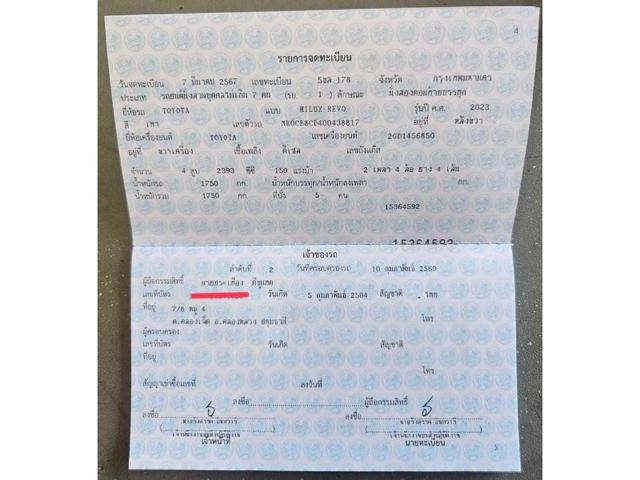 4
รายการจดทะเบียน
วันจดทะเบียน 7 มีนาคม 2567 เลขทะเบียน 5ขส 178 จังหวัด กรุงเทพมหานคร
ประเภท รถยนต์นั่งส่วนบุคคลไม่เกิน 7 คน (รย. 1) ลักษณะ นั่งสองตอนท้ายบรรทุก
ยี่ห้อรถ TOYOTA แบบ HILUX REVO รุ่นปี ค.ศ. 2023
สี เทา เลขตัวรถ MR0CB8CD400438817 อยู่ที่ หลังขวา
ยี่ห้อเครื่องยนต์ TOYOTA เลขเครื่องยนต์ 2GD1456850
อยู่ที่ ขวาเครื่อง เชื้อเพลิง ดีเซล เลขถังแก๊ส
จำนวน 4 สูบ 2393 ซีซี 150 แรงม้า 2 เพลา 4 ล้อ ยาง 4 เส้น
น้ำหนักรถ 1750 กก. น้ำหนักบรรทุก/น้ำหนักลงเพลา กก.
น้ำหนักรวม 1750 กก. ที่นั่ง 5 คน
15364592
15364592
เจ้าของรถ
ลำดับที่ 2 วันที่ครอบครองรถ 10 กุมภาพันธ์ 2569
ผู้ถือกรรมสิทธิ์
เลขที่บัตร วันเกิด 5 กุมภาพันธ์ 2504 สัญชาติ ไทย
ที่อยู่ 7/6 หมู่ 4
โทร.
ผู้ครอบครอง
เลขที่บัตร วันเกิด สัญชาติ
ที่อยู่
โทร.
สัญญาเช่าซื้อเลขที่ ลงวันที่
ลงชื่อ ผู้ถือกรรมสิทธิ์
ลงชื่อ ลงชื่อ
เจ้าหน้าที่ นายทะเบียน
5